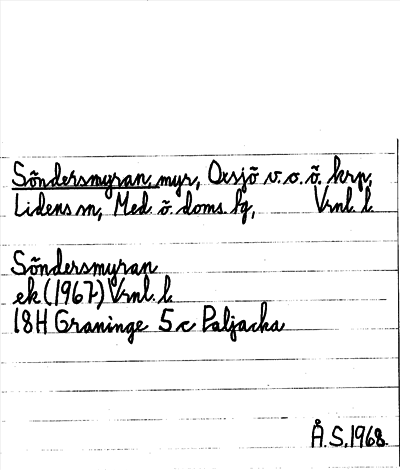 Söndersmyran, myr, Oxsjö v.o.ö. krp,
Lidens sn, Med. ö. doms. fg, Vrnl. l.
Söndersmyran
ek (1967) Vrnl. l.
18H Graninge 5 c Paljacka
Å.S. 1968.